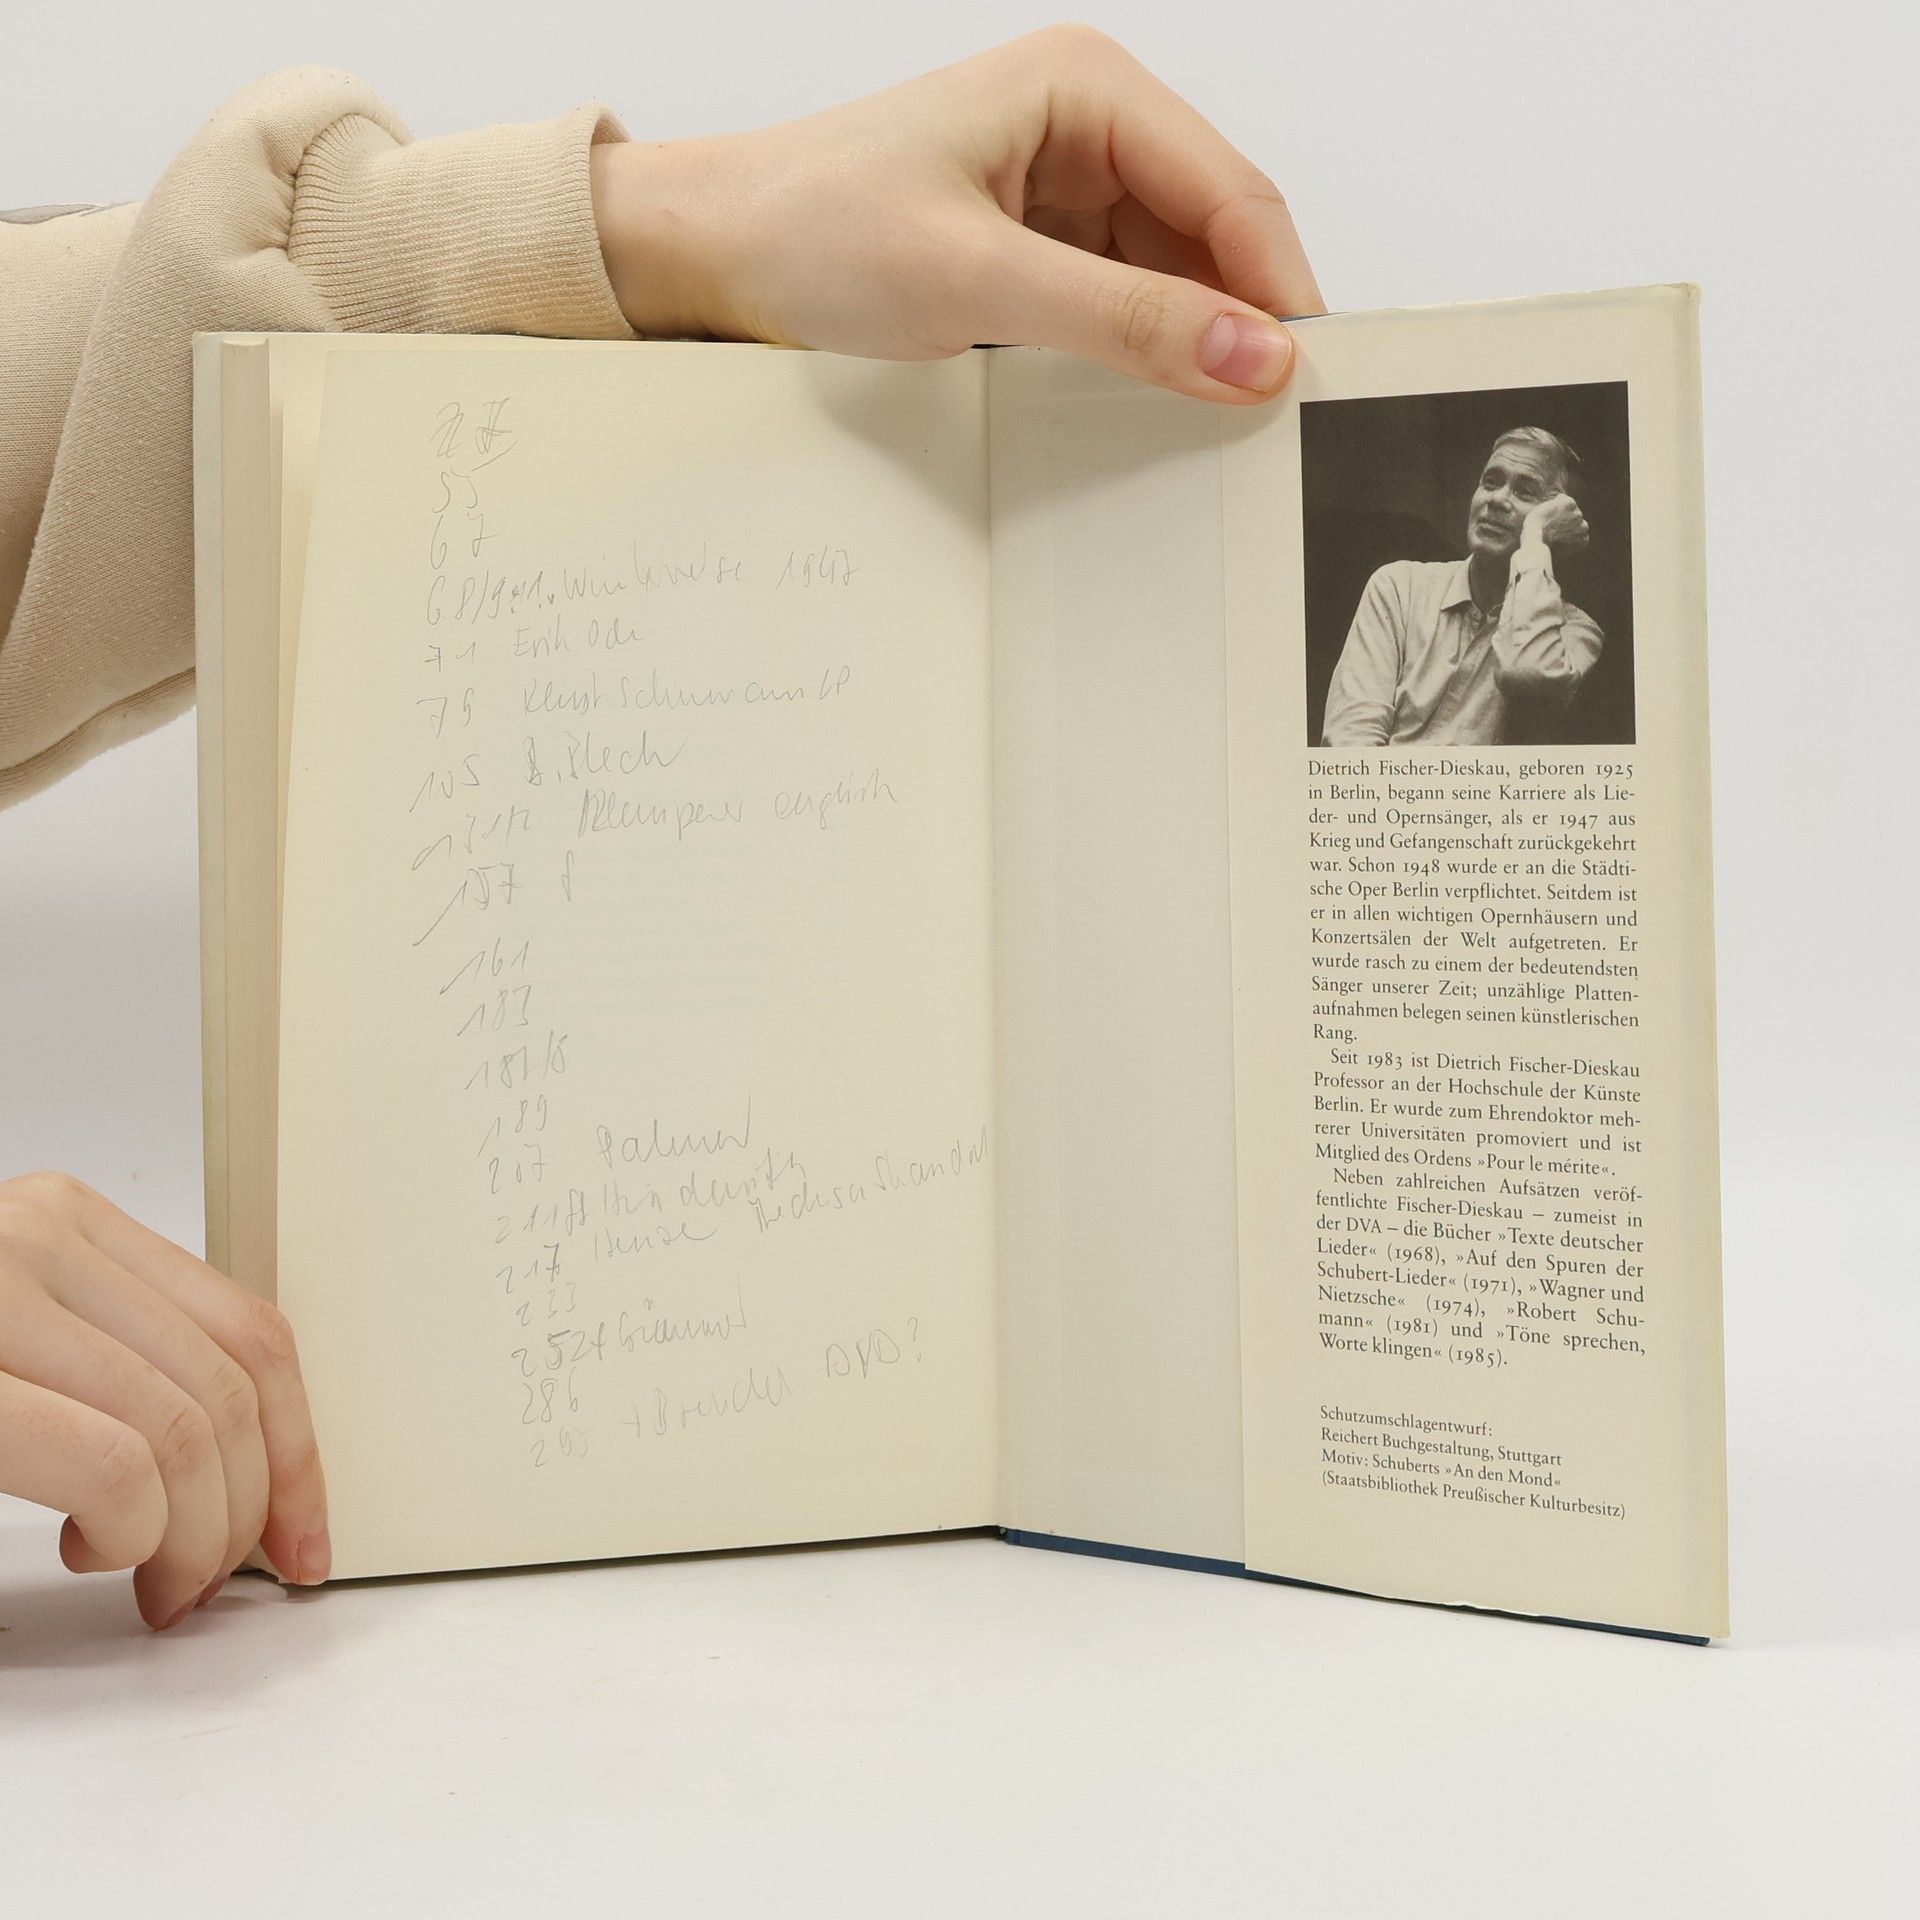 55
67
68/9 1. Winterreise 1947
71 Erik Ode
79 Schumann LP
105 Blech
131/2 Klemperer englisch
157
161
183
187/8
189
207 Palmer
211ff Hindemith
217 Henze Medusa Skandal
233
252
286
295 + Brendel DVD?
Dietrich Fischer-Dieskau, geboren 1925
in Berlin, begann seine Karriere als Lie-
der- und Opernsänger, als er 1947 aus
Krieg und Gefangenschaft zurückgekehrt
war. Schon 1948 wurde er an die Städti-
sche Oper Berlin verpflichtet. Seitdem ist
er in allen wichtigen Opernhäusern und
Konzertsälen der Welt aufgetreten. Er
wurde rasch zu einem der bedeutendsten
Sänger unserer Zeit; unzählige Platten-
aufnahmen belegen seinen künstlerischen
Rang.
Seit 1983 ist Dietrich Fischer-Dieskau
Professor an der Hochschule der Künste
Berlin. Er wurde zum Ehrendoktor meh-
rerer Universitäten promoviert und ist
Mitglied des Ordens »Pour le mérite«.
Neben zahlreichen Aufsätzen veröf-
fentlichte Fischer-Dieskau – zumeist in
der DVA – die Bücher »Texte deutscher
Lieder« (1968), »Auf den Spuren der
Schubert-Lieder« (1971), »Wagner und
Nietzsche« (1974), »Robert Schu-
mann« (1981) und »Töne sprechen,
Worte klingen« (1985).
Schutzumschlagentwurf:
Reichert Buchgestaltung, Stuttgart
Motiv: Schuberts »An den Mond«
(Staatsbibliothek Preußischer Kulturbesitz)